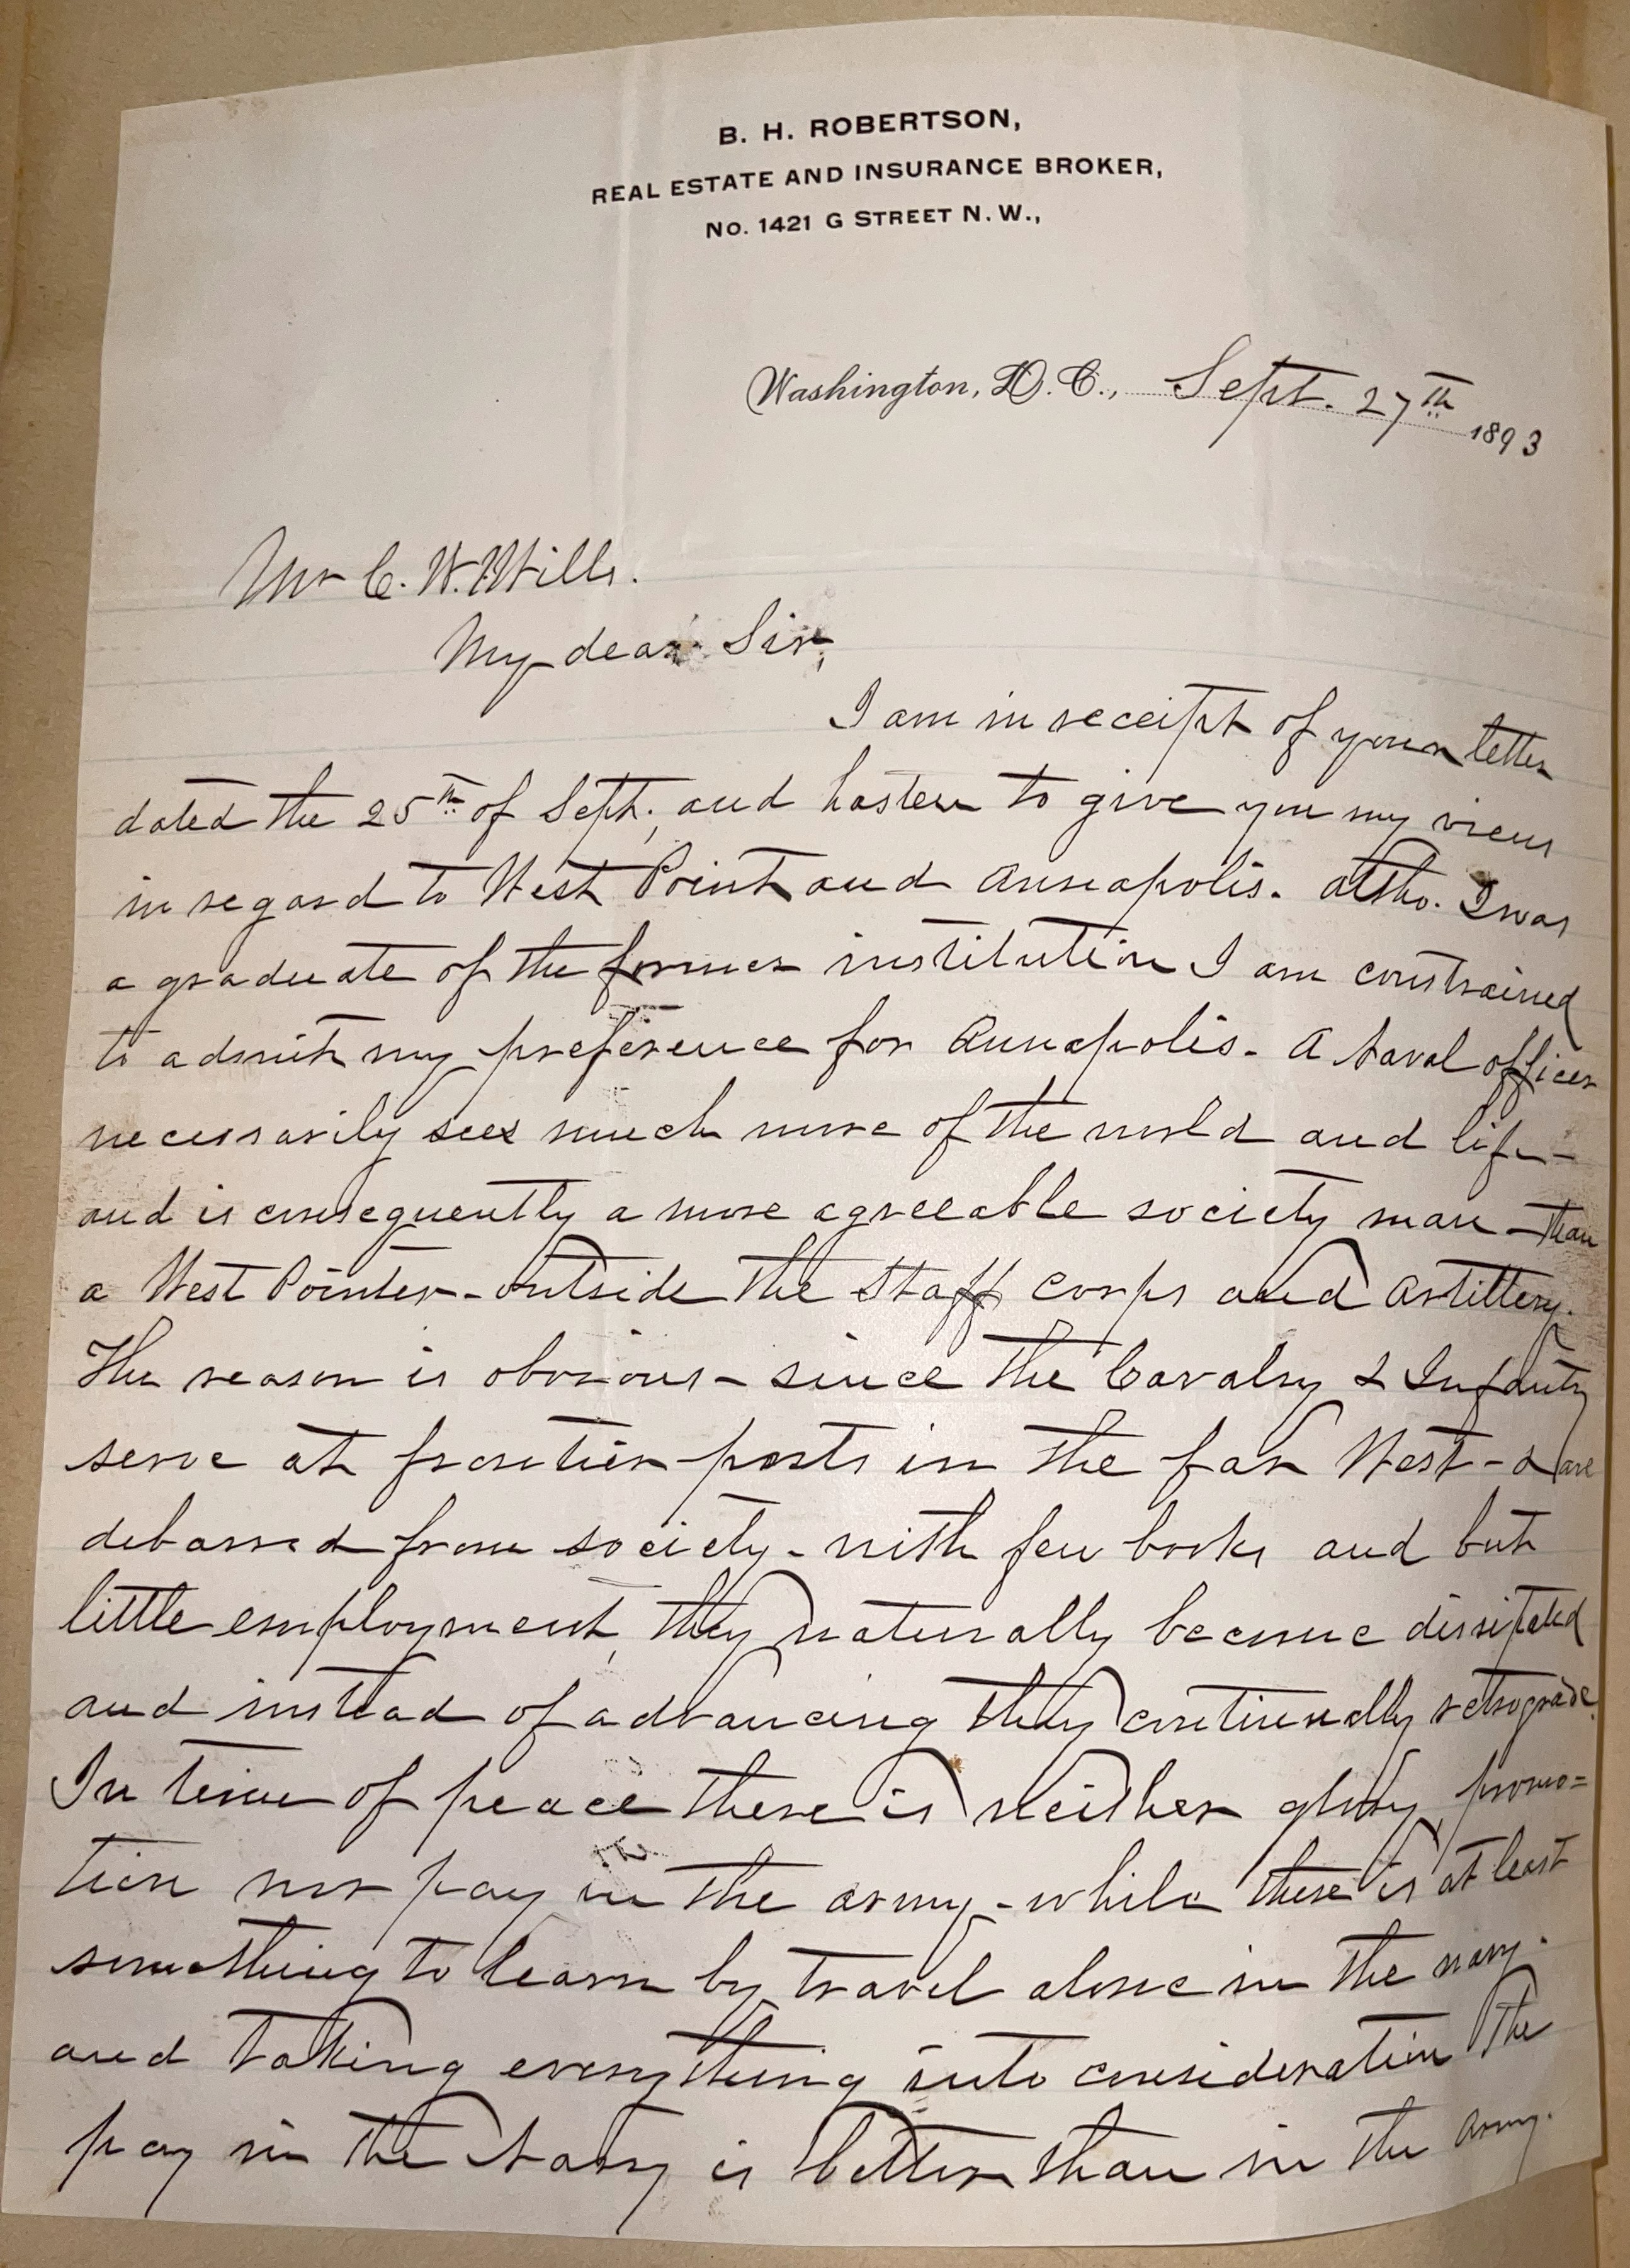 B. H. ROBERTSON,
REAL ESTATE AND INSURANCE BROKER,
No. 1421 G STREET N. W.,
Washington, D. C., Sept. 27th 1893
Mr C. W. Wills.
My dear Sir,
I am in receipt of your letter
dated the 25th of Sept., and hasten to give you my views
in regard to West Point and Annapolis. Altho. I was
a graduate of the former institution I am constrained
to admit my preference for Annapolis. A Naval officer
necessarily sees much more of the world and life -
and is consequently a more agreeable society man - than
a West Pointer - outside the Staff Corps and Artillery.
The reason is obvious - since the Cavalry & Infantry
serve at frontier posts in the far West - & are
debarred from society - with few books and but
little employment, they naturally become dissipated
and instead of advancing they continually retrograde.
In time of peace there is neither glory, promo=
tion nor pay in the army - while there is at least
something to learn by travel alone in the navy.
and taking everything into consideration the
pay in the Navy is better than in the army.